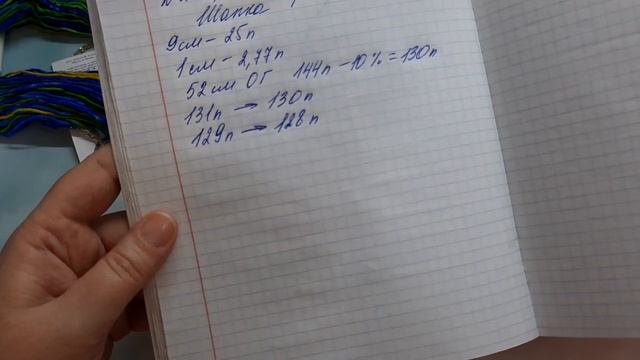 Шапка
9см - 25п
1см - 2,77п
52см ОГ 144п - 10% = 130п
131п → 130п
129п → 128п